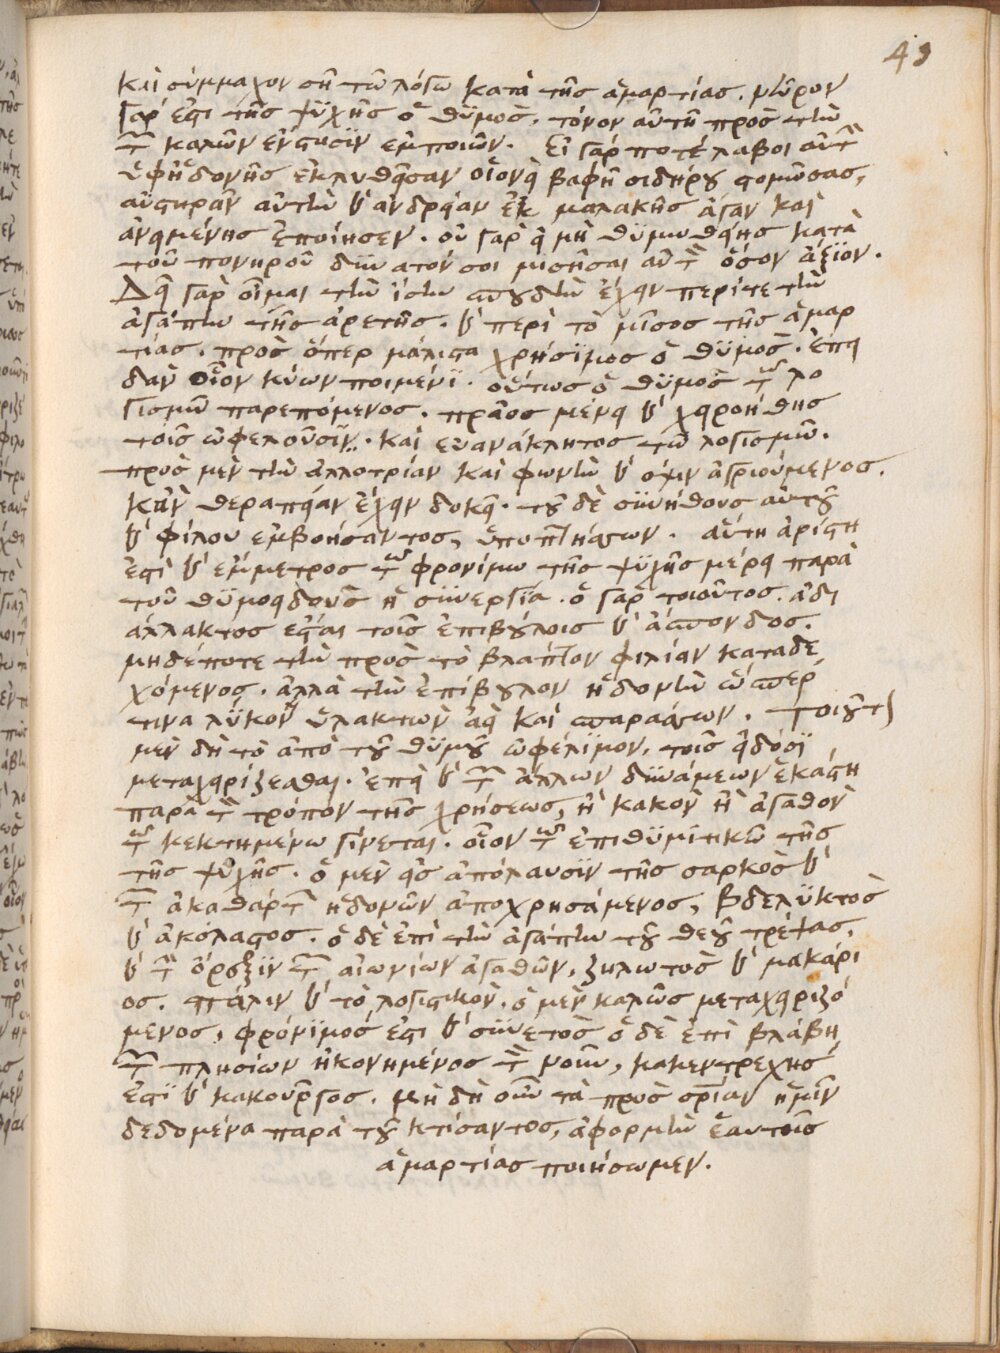 καὶ σύμμαχον σῆ τῶ λόγω κατὰ τῆς ἁμαρτίας. νεῦρον
γάρ ἐστι τῆς ψυχῆς ὁ θϋμὸς, τόνον αὐτῆ πρὸς τὴν
τῶν καλῶν ἔνστασϊν ἐμποιῶν. Εἰ γάρ ποτε λάβοι αὐτὴν
ὑφηδονῆς ἐκλυθεῖσαν οἱονεὶ βαφῆ σιδήρου στομώσας,
αὐστηρὰν αὐτὴν καὶ ἀνδρείαν ἐκ μαλακῆς ἄγαν καὶ
ἀνειμένης ἐποίησεν. οὐ γὰρ εἰ μὴ θϋμωθείης κατὰ
τοῦ πονηροῦ δϋνατόν σοι μισῆσαι αὐτὸν ὅσον ἄξϊον.
Δεῖ γὰρ οἶμαι τὴν ἴσην σπουδὴν ἔχειν περίτε τὴν
ἀγάπην τῆς ἀρετῆς. καὶ περὶ τὸ μῖσος τῆς ἁμαρ
τίας. πρὸς ὅπερ μάλιστα χρήσϊμος ὁ θϋμὸς. ἐπει
δὰν οἷον κύων ποιμένϊ. οὕτως ὁ θϋμὸς τῶ λο
γισμῶ παρεπόμενος. πρᾶος μένει καὶ χειροήθης
τοῖς ὠφελοῦσϊν. καὶ εὐανάκλητος τῶ λογισμῶ.
πρὸς μὲν τὴν ἀλλοτρίαν καὶ φωνὴν καὶ ὄψιν ἀγριούμενος.
κἂν θεραπείαν ἔχειν δοκεῖ. τοῦ δὲ σϋνήθους αὐτοῦ
καὶ φίλου ἐμβοήσαντος, ὑποπτήσσων. αὕτη ἀρίστη
ἐστὶ καὶ ἔμμετρος τῶ φρονίμω τῆς ψυχῆς μέρει παρὰ
τοῦ θϋμοειδοῦς ἡ σϋνεργϊα. ὁ γὰρ τοιοῦτος. ἀδι
άλλακτος ἔσται τοῖς ἐπιβούλοις καὶ ἄσπονδος.
μηδέποτε τὴν πρὸς τὸ βλάπτον φιλίαν καταδε
χόμενος. ἀλλὰ τὴν ἐπίβουλον ἡδονὴν ὥσπερ
τινα λύκον ὑλακτῶν ἀεὶ καὶ σπαράσσων. τοιοῦτον
μὲν δὴ τὸ ἀπὸ τοῦ θϋμοῦ ὠφέλϊμον, τοῖς εἰδόσϊ
μεταχειρίζεσθαι. ἐπεὶ καὶ τῶν ἄλλων δϋνάμεων ἑκάστη
παρὰ τὸν τρόπον τῆς χρήσεως, ἢ κακὸν ἢ ἀγαθὸν
τῶ κεκτημένω γίνεται. οἷον τῶ ἐπιθϋμϊτικῶ τῆς
τῆς ψϋχῆς. ὁ μὲν εἰς ἀπόλαυσϊν τῆς σαρκὸς καὶ
τῶν ἀκαθάρτων ἡδονῶν ἀποχρησάμενος, βδελϋκτὸς
καὶ ἀκόλαστος. ὁ δὲ ἐπὶ τὴν ἀγάπην τοῦ θεοῦ τρέψας,
καὶ τὴν ὄρεξϊν τῶν αἰωνίων ἀγαθῶν, ζηλωτὸς καὶ μακάρι
ος. πάλιν καὶ τὸ λογιστικὸν. ὁ μὲν καλῶς μεταχειριζό
μενος, φρόνϊμος ἐστι καὶ σϋνετὸς ὁ δὲ ἐπὶ βλάβη
τῶν πλησίων ἠκονημένος τὸν νοῦν, κακεντρεχὴς
ἐστϊ καὶ κακοῦργος. μὴ δὴ οὖν τὰ πρὸς σωτηρίαν ἡμῖν
δεδομένα παρὰ τοῦ κτίσαντος, ἀφορμὴν ἑαυτοῖς
ἁμαρτίας ποιήσωμεν.